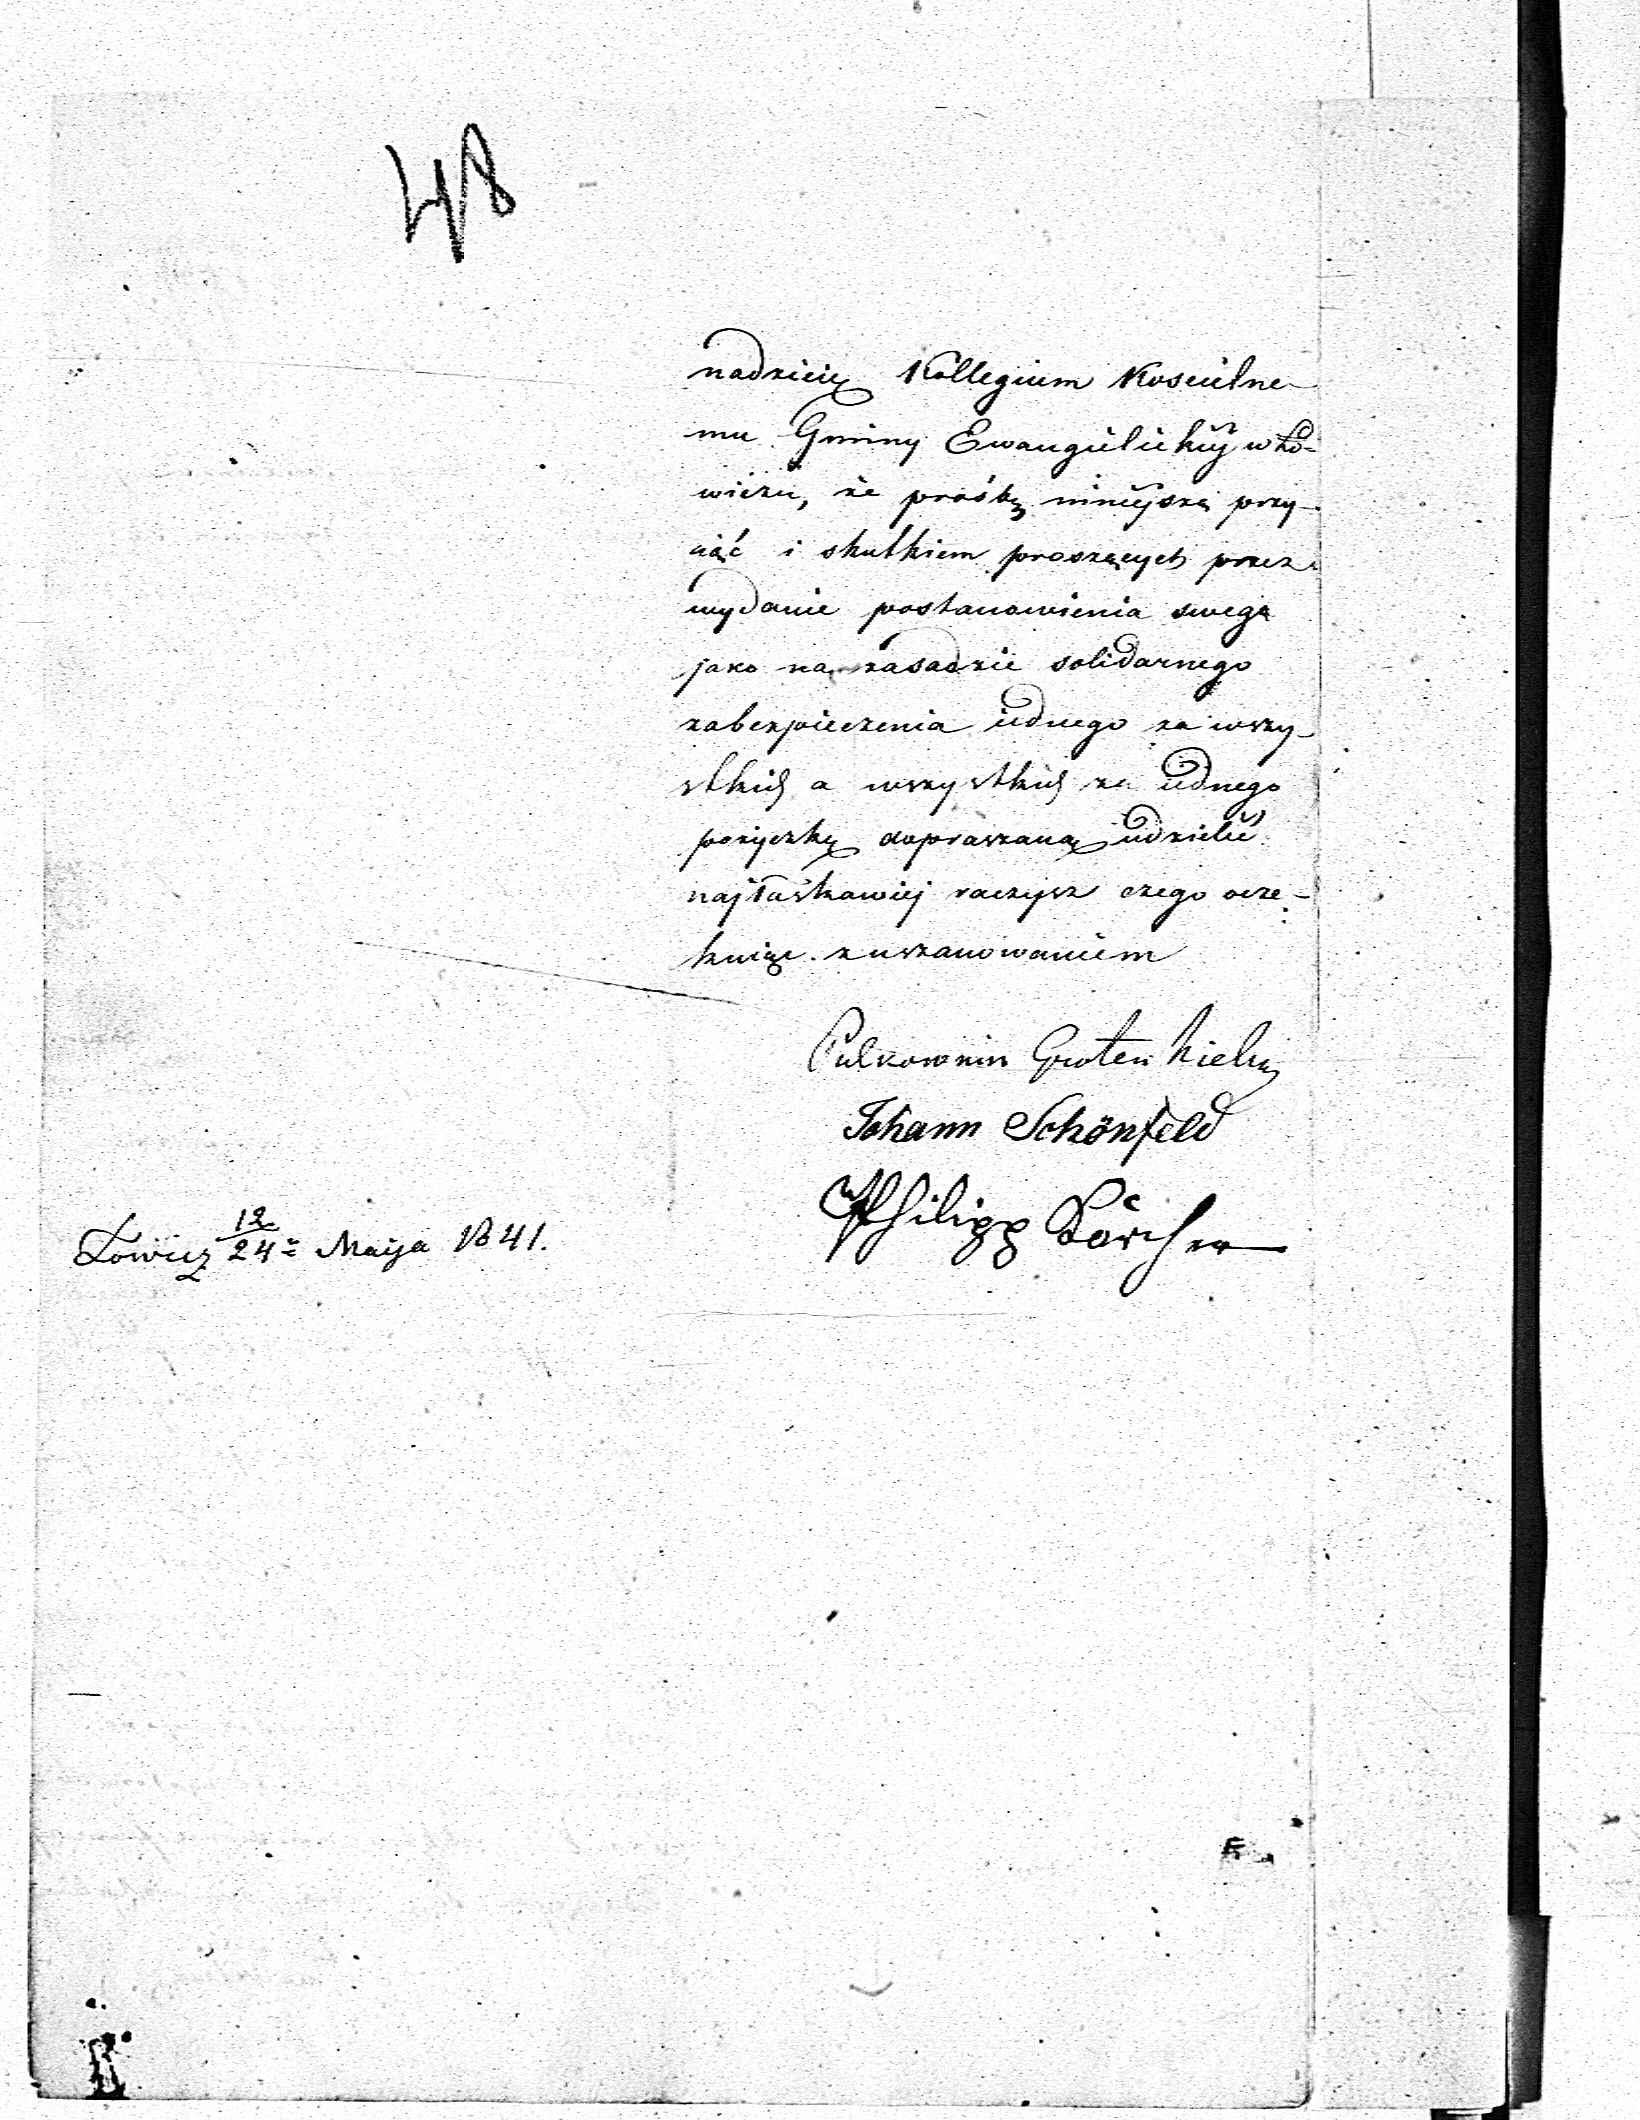 48
nadzieię Kollegium Koscielne-
mu Gminy Ewangielickiey w Ło-
wiczu, że prośbę ninieyszą przy-
iąć i skutkiem proszących przez
wydanie postanowienia swego
jako na zasadzie solidarnego
zabezpieczenia iednego za wszy-
stkich a wszystkich za iednego
pożyczkę dopraszaną udzielić
najłaskawiej raczysz czego ocze-
kuiąc z uszanowaniem
Johann Schönfeld
Philipp
Łowicz 12/24 Maija 1841.